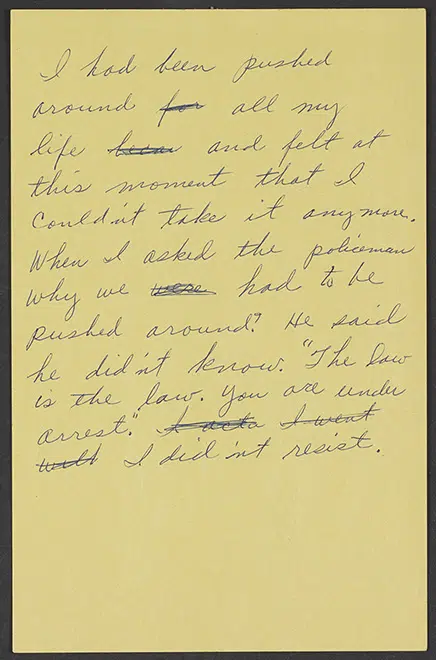 I had been pushed
around for all my
life becau and felt at
this moment that I
couldn't take it anymore.
When I asked the policeman
why we were had to be
pushed around? He said
he didn't know. "The law
is the law. You are under
arrest." I didn't resist.